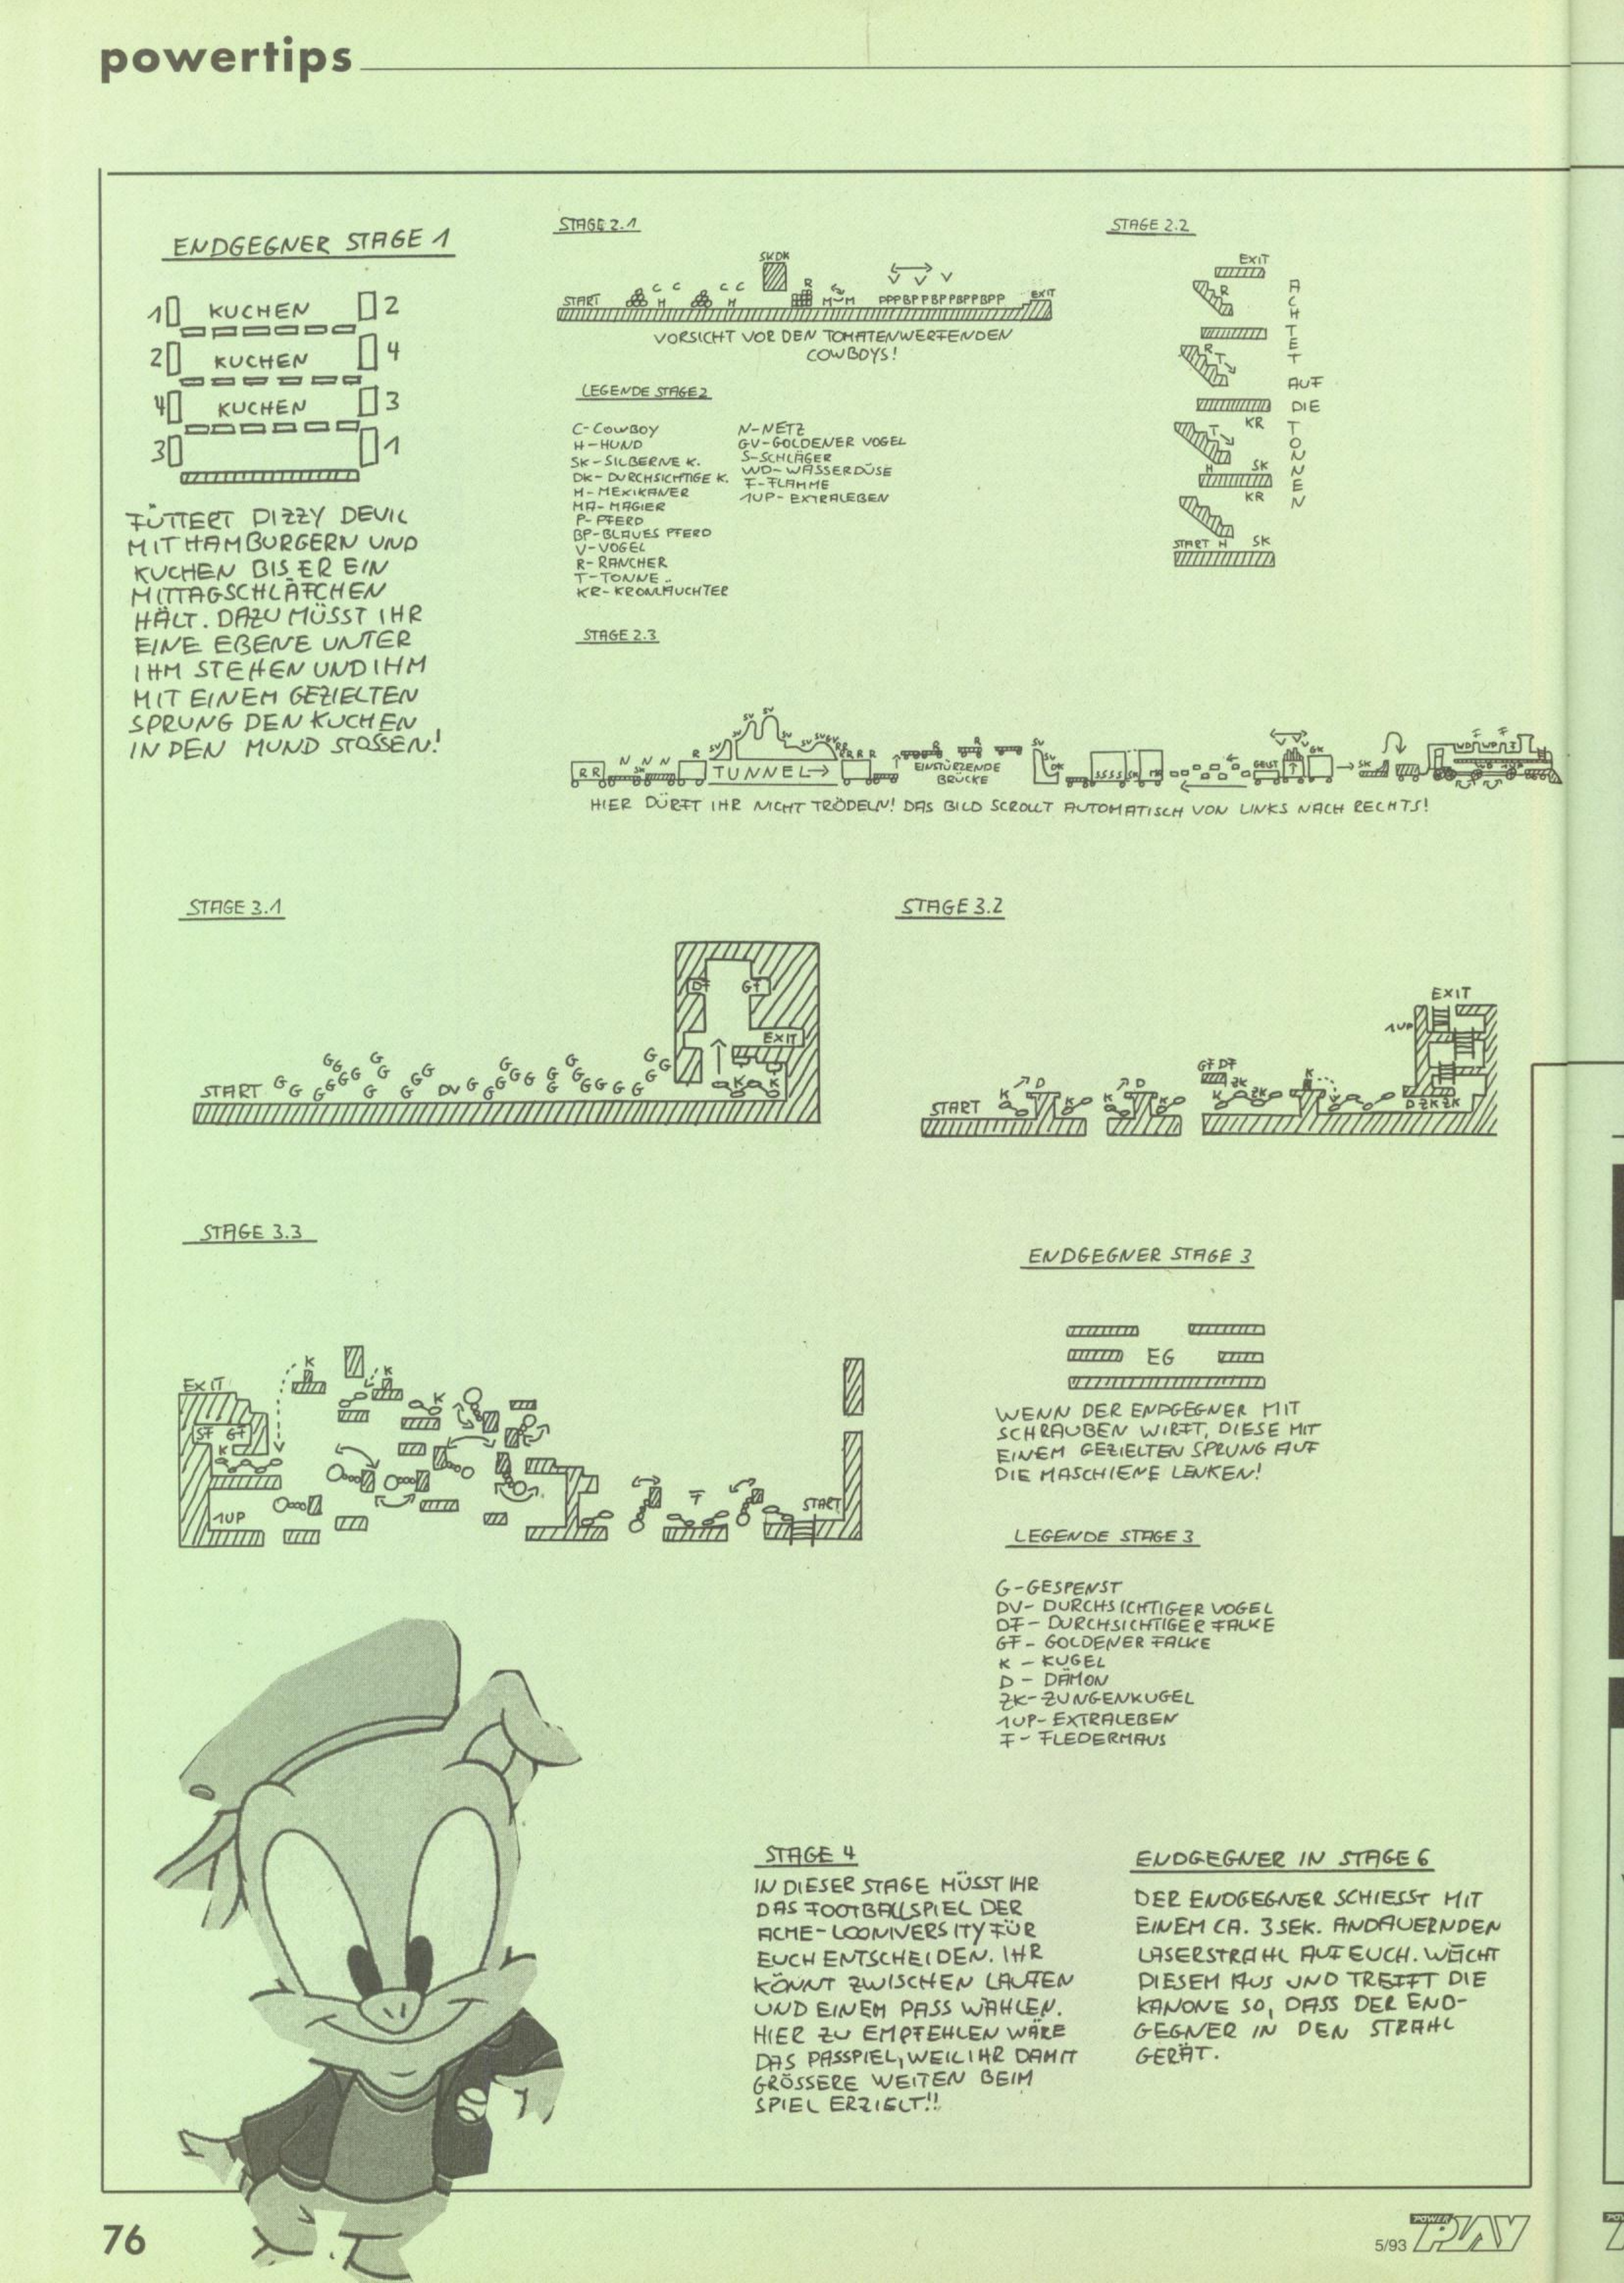 powertips
ENDGEGNER STAGE 1
1 KUCHEN 2
2 KUCHEN 4
4 KUCHEN 3
3 1
FÜTTERT DIZZY DEVIL
MIT HAMBURGERN UND
KUCHEN BIS ER EIN
MITTAGSCHLÄFCHEN
HÄLT. DAZU MÜSST IHR
EINE EBENE UNTER
IHM STEHEN UND IHM
MIT EINEM GEZIELTEN
SPRUNG DEN KUCHEN
IN DEN MUND STOSSEN!
STAGE 2.1
SKDK
C C C C R V V V
START H H M M PPPBPPBPPBPPBPP EXIT
VORSICHT VOR DEN TOMATENWERFENDEN
COWBOYS!
LEGENDE STAGE 2
C-COWBOY
H-HUND
SK-SILBERNE K.
DK-DURCHSICHTIGE K.
M-MEXIKANER
MA-MAGIER
P-PFERD
BP-BLAUES PFERD
V-VOGEL
R-RANCHER
T-TONNE
KR-KRONLÄUCHTER
N-NETZ
GV-GOLDENER VOGEL
S-SCHLÄGER
WD-WASSERDÜSE
F-FLAMME
1UP-EXTRALEBEN
STAGE 2.2
EXIT
R
R T
KR
T
H SK
KR
START H SK
ACHTET
AUF
DIE
TONNEN
STAGE 2.3
R R N N N SK R TUNNEL R R R R R R EINSTÜRZENDE
BRÜCKE
SV DK SSSS GEIST GK SK
HIER DÜRFT IHR NICHT TRÖDELN! DAS BILD SCROLLT AUTOMATISCH VON LINKS NACH RECHTS!
STAGE 3.1
DF GF
EXIT
START G G G G G G G G G G G G G DV G G G G G G G G G G G G G G G G K K
STAGE 3.2
EXIT
1UP
GF DF
START K D K K D K K ZK ZK K D ZK ZK
STAGE 3.3
K K K
EXIT
SF GF
K
1UP
F
START
ENDGEGNER STAGE 3
EG
WENN DER ENDGEGNER MIT
SCHRAUBEN WIRFT, DIESE MIT
EINEM GEZIELTEN SPRUNG AUF
DIE MASCHIENE LENKEN!
LEGENDE STAGE 3
G-GESPENST
DV-DURCHSICHTIGER VOGEL
DF-DURCHSICHTIGER FALKE
GF-GOLDENER FALKE
K-KUGEL
D-DÄMON
ZK-ZUNGENKUGEL
1UP-EXTRALEBEN
F-FLEDERMAUS
STAGE 4
IN DIESER STAGE MÜSST IHR
DAS FOOTBALLSPIEL DER
ACME-LOONIVERSITY FÜR
EUCH ENTSCHEIDEN. IHR
KÖNNT ZWISCHEN LAUFEN
UND EINEM PASS WÄHLEN.
HIER ZU EMPFEHLEN WÄRE
DAS PASSPIEL, WEIL IHR DAMIT
GRÖSSERE WEITEN BEIM
SPIEL ERZIELT!!
ENDGEGNER IN STAGE 6
DER ENDGEGNER SCHIESST MIT
EINEM CA. 3 SEK. ANDAUERNDEN
LASERSTRAHL AUF EUCH. WEICHT
DIESEM AUS UND TREFFT DIE
KANONE SO, DASS DER END-
GEGNER IN DEN STRAHL
GERÄT.
76
5/93 POWER PLAY